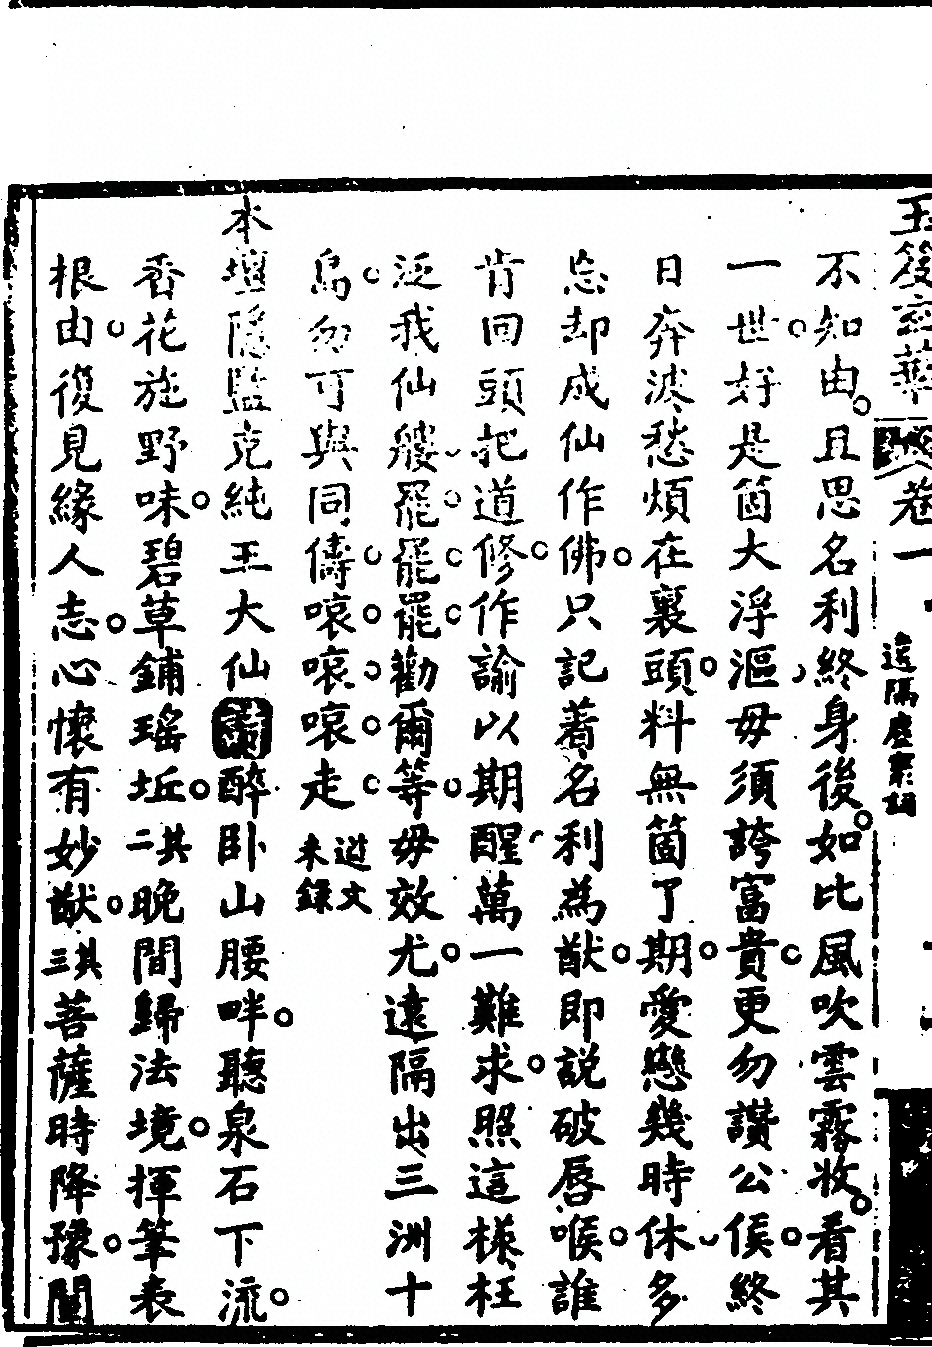 玉笈玄華 卷一 遠隔塵寰詞
不知由。且思名利終身後。如比風吹雲霧收。看其
一世。好是箇大浮漚。毋須誇富貴。更勿讚公侯。終
日奔波愁煩在裏頭。料無箇了期。愛戀幾時休。多
忘却成仙作佛。只記著名利為猷。即說破唇喉。誰
肯回頭把道修。作諭以期醒萬一。難求。照這樣枉
泛我仙艘。罷。罷。罷。勸爾等。毋效尤。遠隔出三洲十
島。勿可與同儔。哀。哀。哀。走。遊文未錄
本壇隱監克純王大仙 醉卧山腰畔。聽泉石下流。
香花旋野味。碧草鋪瑤坵。其二晚間歸法境。揮筆表
根由。復見緣人志。心懷有妙猷。其三菩薩時降豫。闡